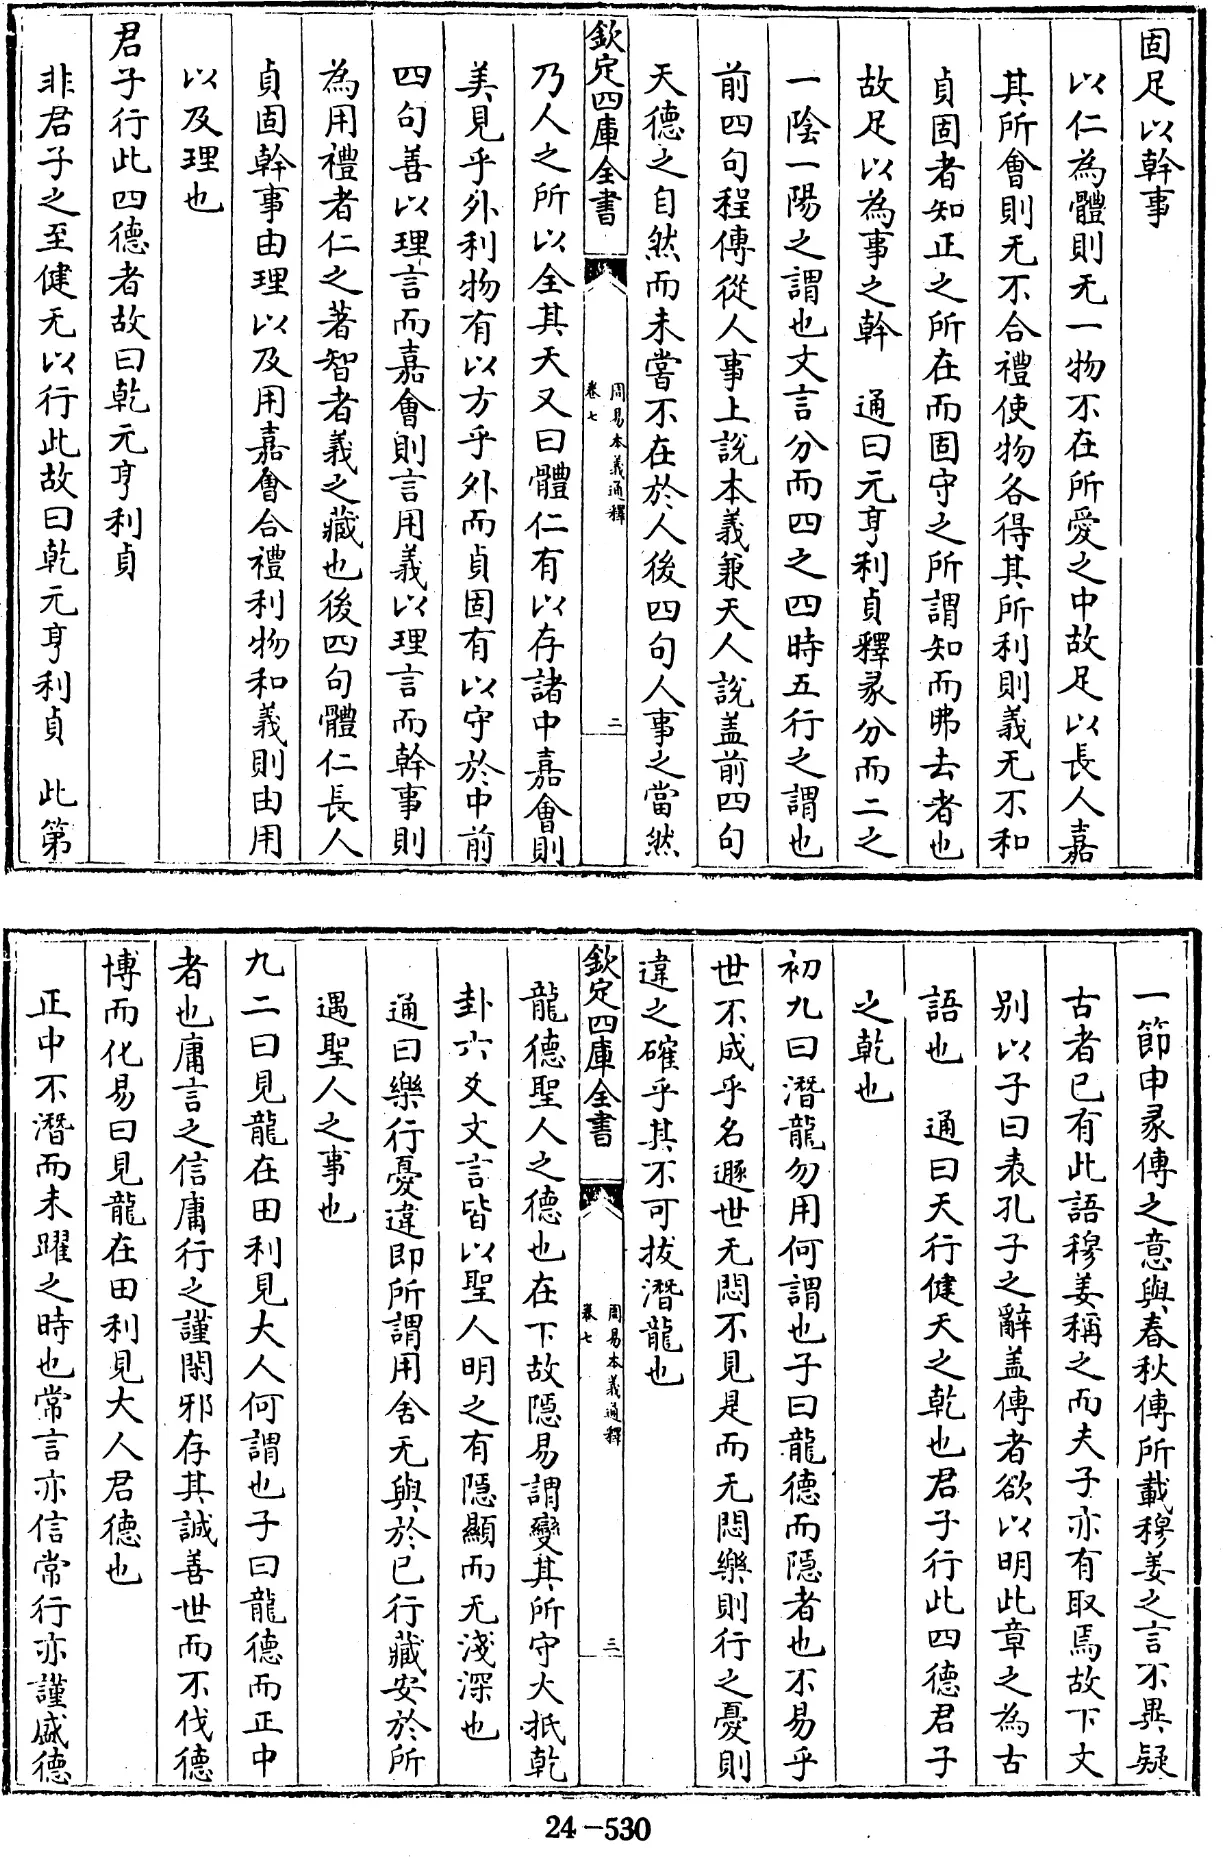 固足以幹事
以仁為體則无一物不在所愛之中故足以長人嘉
其所會則无不合禮使物各得其所利則義无不和
貞固者知正之所在而固守之所謂知而弗去者也
故足以為事之幹　通曰元亨利貞釋彖分而二之
一陰一陽之謂也文言分而四之四時五行之謂也
前四句程傳從人事上說本義兼天人說盖前四句
天德之自然而未嘗不在於人後四句人事之當然
欽定四庫全書
周易本義通釋
卷七
二
乃人之所以全其天又曰體仁有以存諸中嘉會則
美見乎外利物有以方乎外而貞固有以守於中前
四句善以理言而嘉會則言用義以理言而幹事則
為用禮者仁之著智者義之藏也後四句體仁長人
貞固幹事由理以及用嘉會合禮利物和義則由用
以及理也
君子行此四德者故曰乾元亨利貞
非君子之至健无以行此故曰乾元亨利貞　此第
一節申彖傳之意與春秋傳所載穆姜之言不異疑
古者已有此語穆姜稱之而夫子亦有取焉故下文
别以子曰表孔子之辭盖傳者欲以明此章之為古
語也　通曰天行健天之乾也君子行此四德君子
之乾也
初九曰潛龍勿用何謂也子曰龍德而隱者也不易乎
世不成乎名遯世无悶不見是而无悶樂則行之憂則
違之確乎其不可拔潛龍也
欽定四庫全書
周易本義通釋
卷七
三
龍德聖人之德也在下故隱易謂變其所守大抵乾
卦六爻文言皆以聖人明之有隱顯而无淺深也
通曰樂行憂違即所謂用舍无與於已行藏安於所
遇聖人之事也
九二曰見龍在田利見大人何謂也子曰龍德而正中
者也庸言之信庸行之謹閑邪存其誠善世而不伐德
博而化易曰見龍在田利見大人君德也
正中不潛而未躍之時也常言亦信常行亦謹盛德
24-530